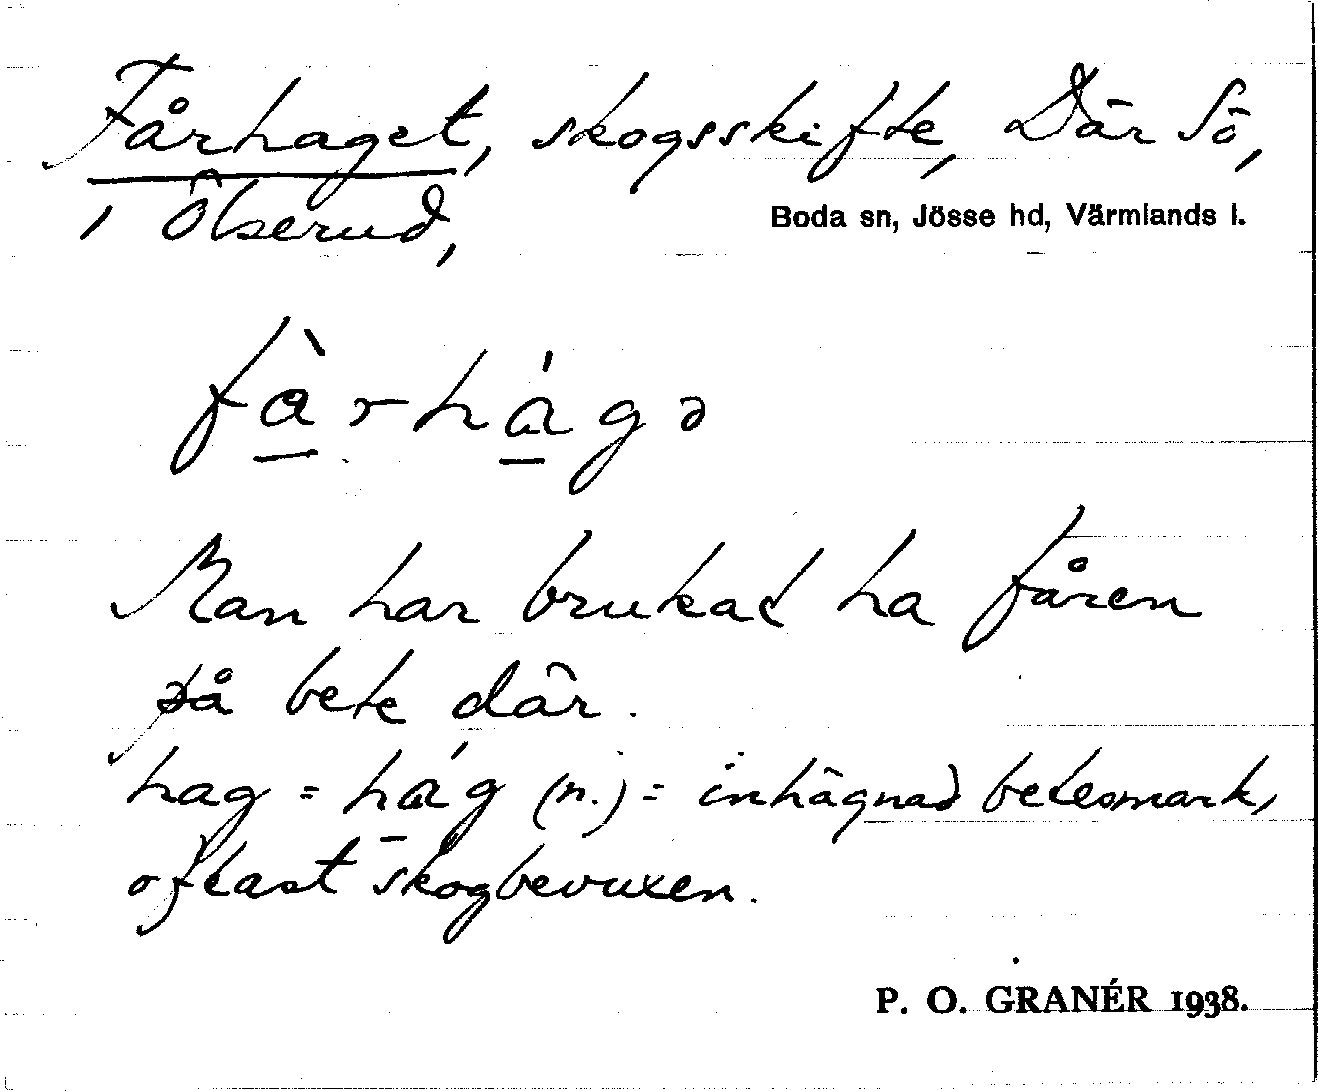 Fårhaget, skogsskifte, Där Sö,
i Ölserud,
Boda sn, Jösse hd, Värmlands l.
fà̱rhá̱gə
Man har brukat ha fåren
på bete där.
hag = há̱g (n.) = inhägnad betesmark,
oftast skogbevuxen.
P. O. GRANÉR 1938.